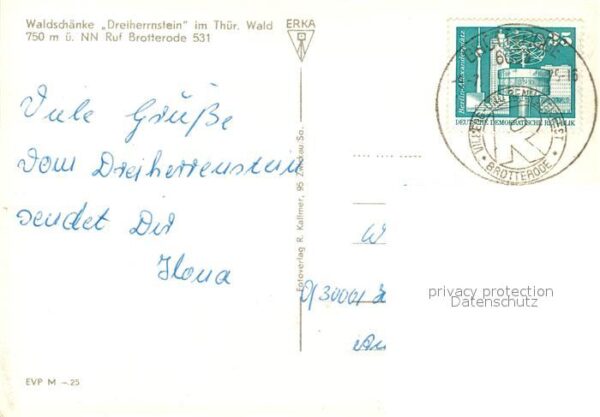 Waldschänke „Dreiherrnstein" im Thür. Wald
750 m ü. NN Ruf Brotterode 531
ERKA
Viele Grüße
vom Dreiherrenstein
sendet Dir
Ilona
Fotoverlag R. Kallmer, 95 Zwickau Sa.
EVP M –.25
Berlin, Alexanderplatz
25
DEUTSCHE DEMOKRATISCHE REPUBLIK
BROTTERODE
W
privacy protection
Datenschutz